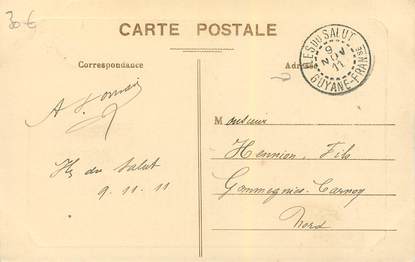 30 €
CARTE POSTALE
Correspondance
Adresse
ILES DU SALUT
9
NOV
11
GUYANE-FRANSE
Monsieur
Hennion, Fils
Gommegnies-Carnoy
Nord
Iles du Salut
9.11.11